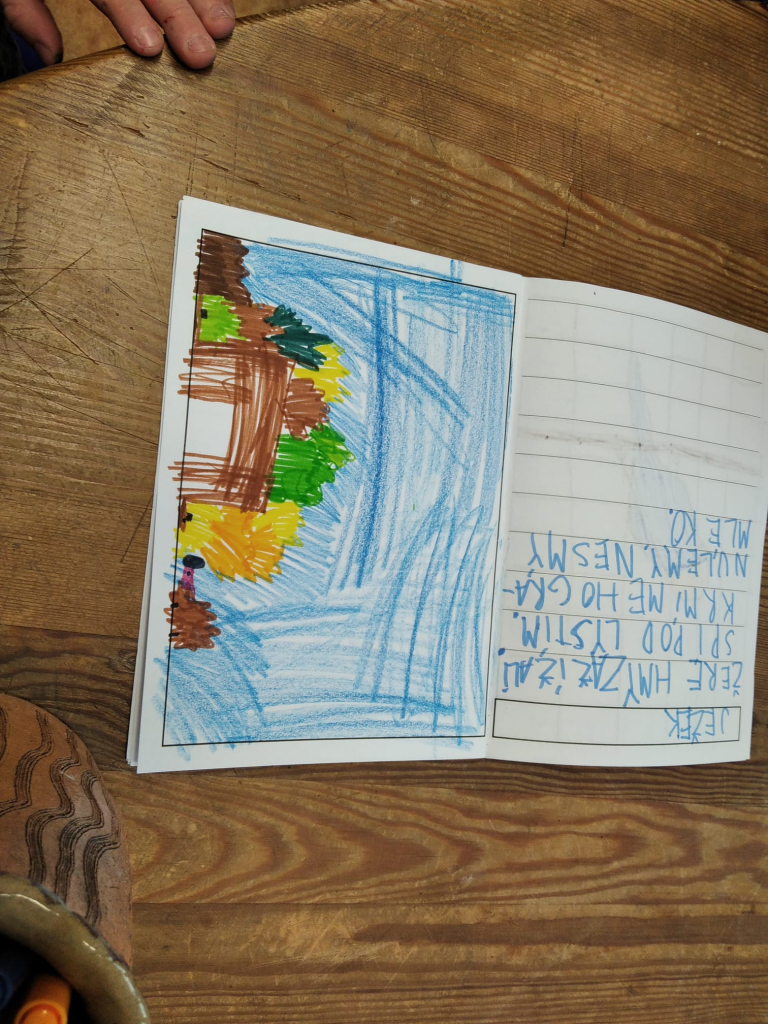 JEŽEK
ŽERE HMYZ A ŽÍŽALI.
SPI POD LYSTIM.
KRMI ME HO GRA-
NULEMY. NESMY
MLEKO.